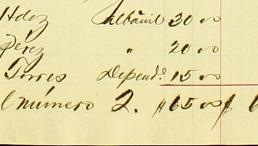 Hdez Albañil 30 00
Pérez " 20 00
Torres Depend.e 15 00
número 2. $65 00